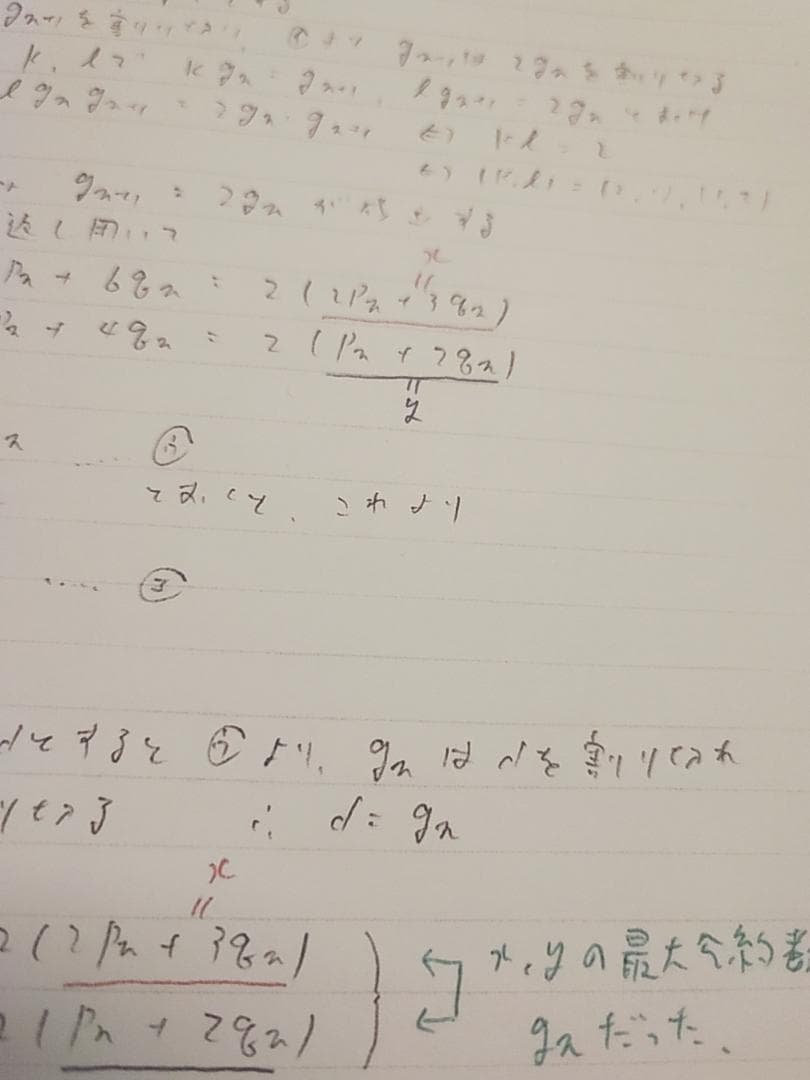 g_{n+1} を割り切る, ①より g_{n+1} は 2g_n を割り切る
k, l で k g_n = g_{n+1}, l g_{n+1} = 2g_n とおける
l g_n g_{n+1} = 2g_n・g_{n+1} ⇔ kl = 2
⇔ (k, l) = (2, 1), (1, 2)
g_{n+1} = 2g_n が成立する
返し用いて
x
||
P_n + 6q_n = 2 (2P_n + 3q_n)
P_n + 4q_n = 2 (P_n + 2q_n)
||
y
n ..... ②
とおくと、これより
.... ③
dとすると ②より, g_n は dを割り切れ
り切る ∴ d = g_n
x
||
2 (2P_n + 3q_n)
x, y の最大公約数
2 (P_n + 2q_n)
g_n だった.